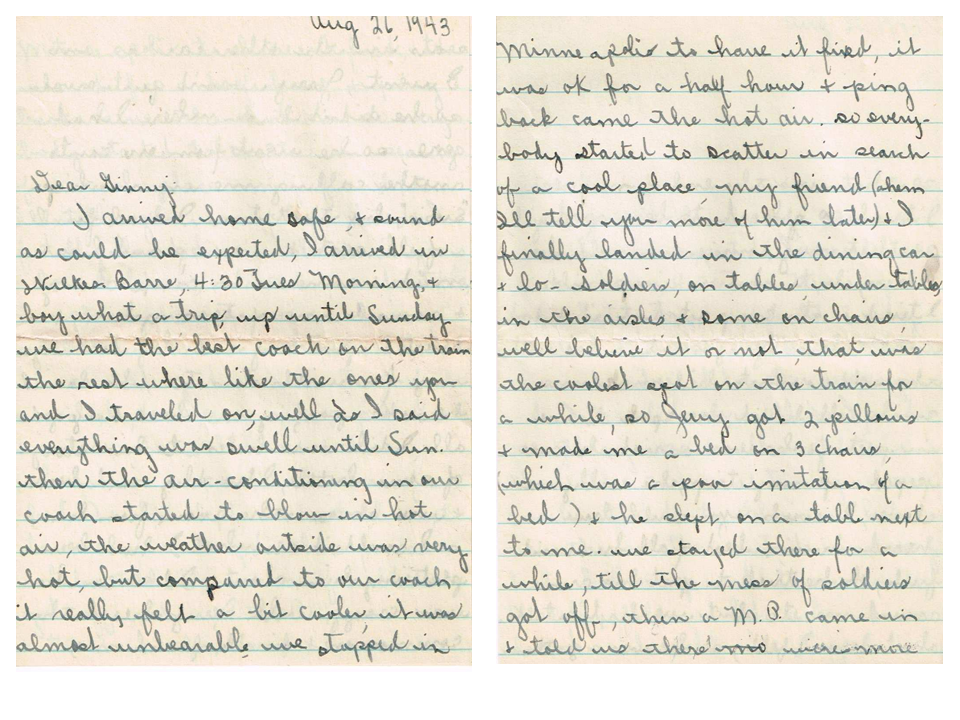 Aug 26, 1943
Dear Ginny,
I arrived home safe & sound
as could be expected, I arrived in
Wilkes Barre, 4:30 Tues Morning, &
boy what a trip, up until Sunday
we had the best coach on the train
the rest where like the ones you
and I traveled on, well as I said
everything was swell until Sun.
then the air-conditioning in our
coach started to blow in hot
air, the weather outside was very
hot, but compared to our coach
it really felt a bit cooler, it was
almost unbearable we stopped in
Minneapolis to have it fixed, it
was OK for a half hour & ping
back came the hot air. so every-
body started to scatter in search
of a cool place my friend (ahem
I'll tell you more of him later) & I
finally landed in the dining car
& lo- soldiers, on tables under tables,
in the aisles & some on chairs,
well believe it or not, that was
the coolest spot on the train for
a while, so Jerry got 2 pillows
& made me a bed on 3 chairs,
(which was a poor imitation of a
bed) & he slept on a tabl next
to me. we stayed there for a
while, till the mess of soldiers
got off, then a M.P. came in
& told us there were more